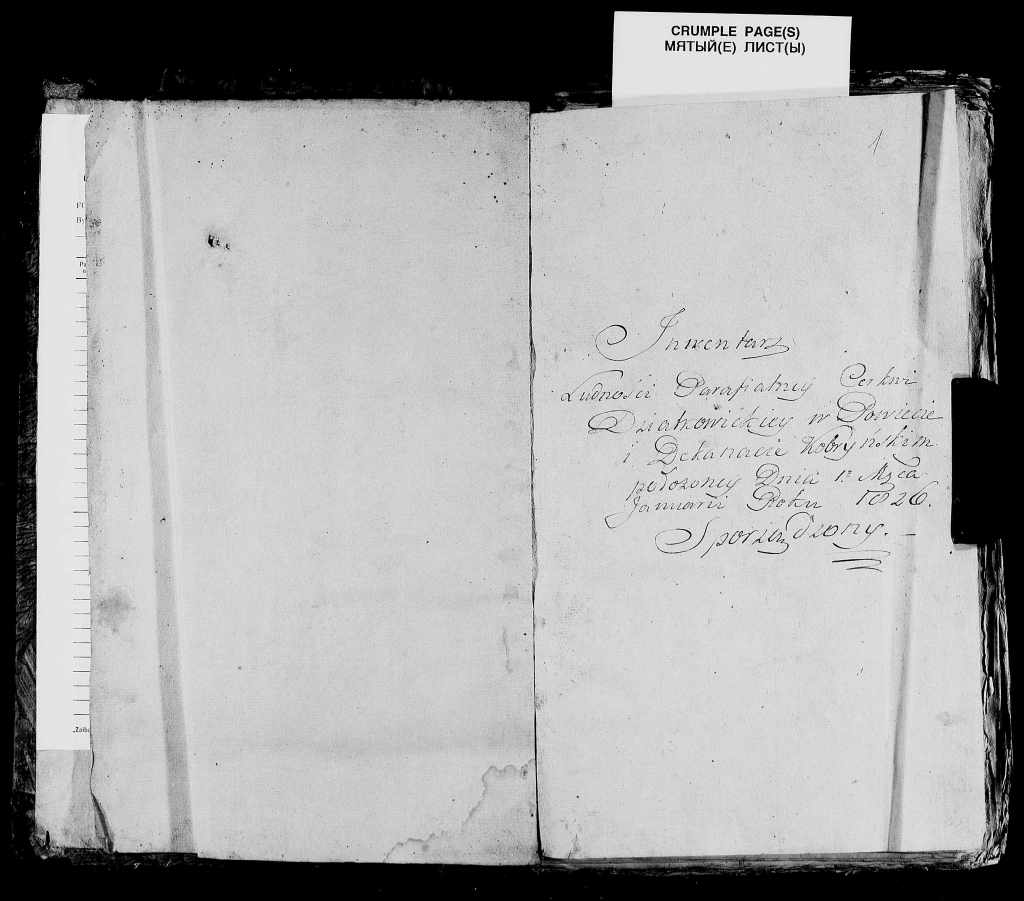 CRUMPLE PAGE(S)
МЯТЫЙ(Е) ЛИСТ(Ы)
1
Inwentarz
Ludności Parafialney Cerkwi
Dziatkowickiey w Powiecie
i Dekanacie Kobryńskim
położoney Dnia 1º Mśca
Januarii Roku 1826.
Sporządzony. —